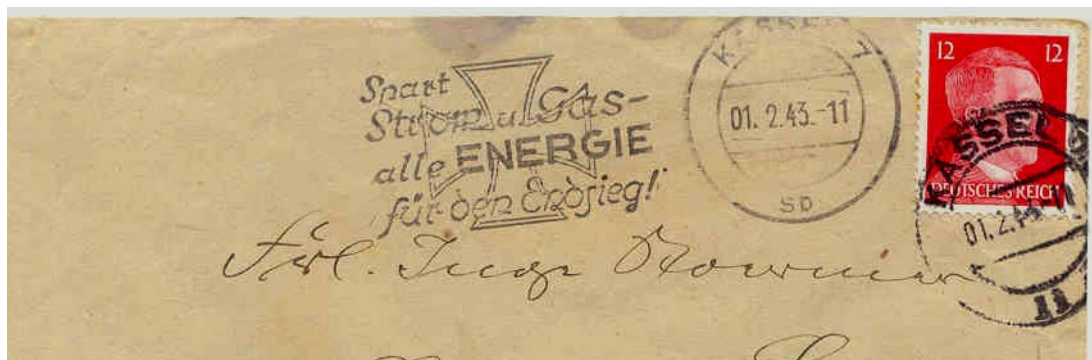 Spart
Strom u. Gas-
alle ENERGIE
für den Endsieg!
KASSEL 7
01. 2.43.-11
sb
12 12
DEUTSCHES REICH
KASSEL
01.2.43
11
Frl. Inge